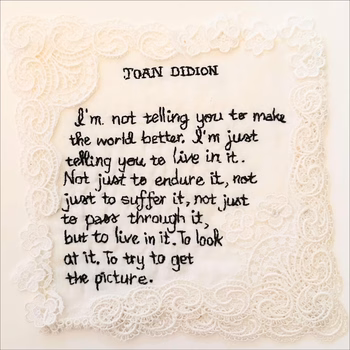 JOAN DIDION
I'm not telling you to make
the world better. I'm just
telling you to live in it.
Not just to endure it, not
just to suffer it, not just
to pass through it,
but to live in it. To look
at it. To try to get
the picture.